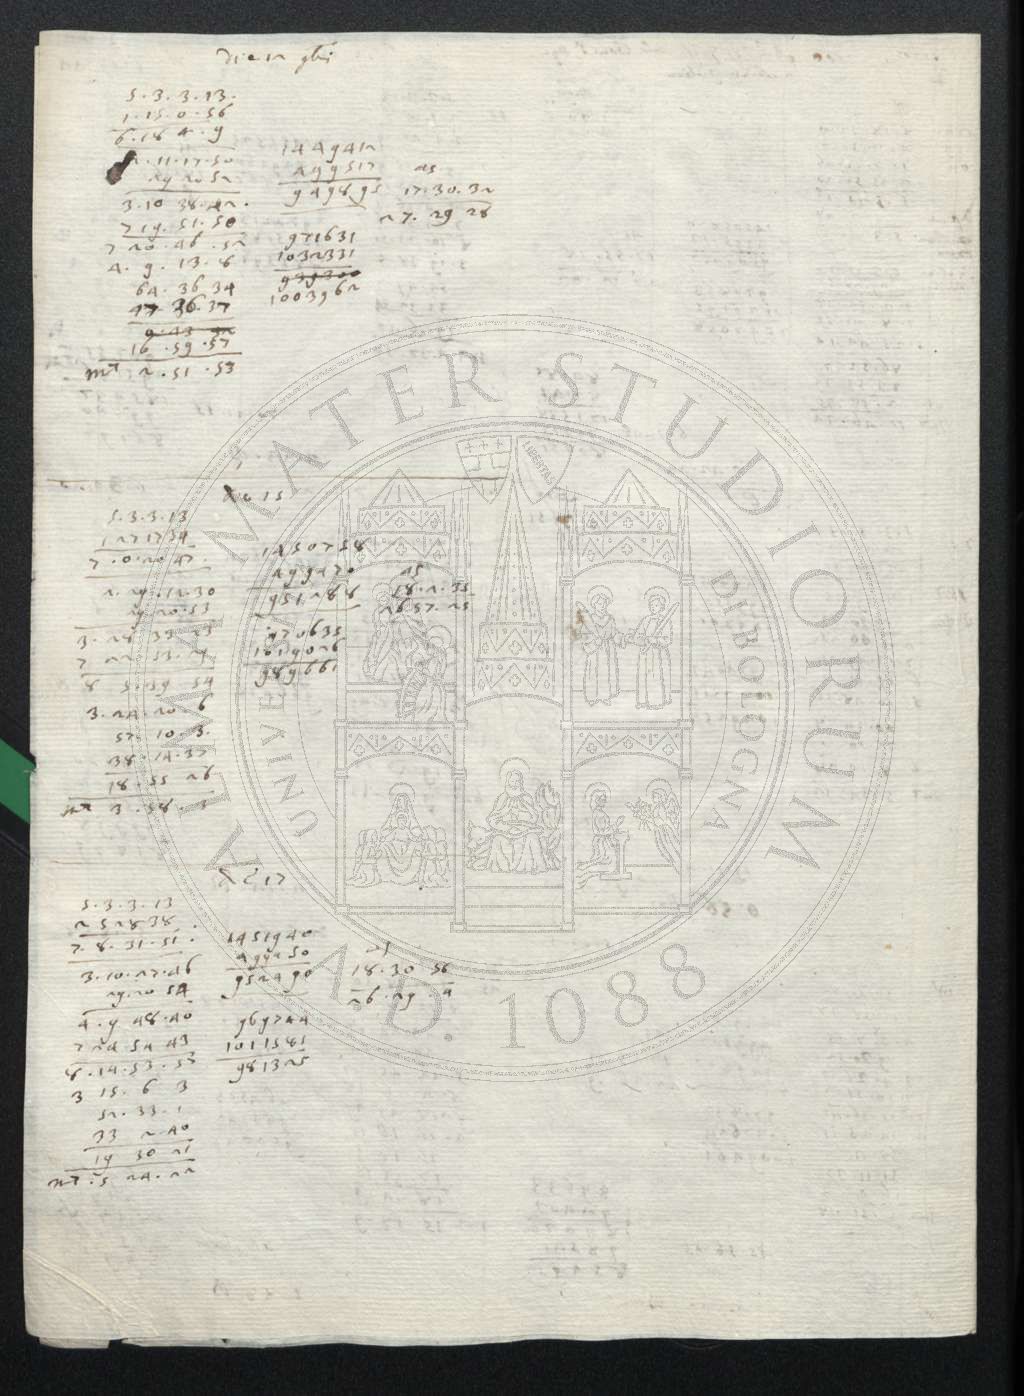 Die 12 9bris
5.3.3.13.
1.15.0.56
6.18 4.9
2.11.17.50
29 20 52
3.10 38.42.
7 19.51.50
7 20.46.52
4.9.13.8
64.36 34
47 36.37
9.43 32
16.59.57
m 2.51.53
1449412
499517
949895
971631
1032331
939300
1003962
as
17.30.32
27.29 28
Die 15
5.3.3.13
1 27 17 34
7.0.20 47.
2.29.12.30
29 20.53
3.28 33 23
7 22 53.29
8 5.39 54
3.24.20.6
57 10 3.
38.14.37
18.55 26
m 3.58.3
1450758
499470
951288
970635
1019026
989661
as
18.2.35
26 57.25
Die 17
5.3.3.13
2 5 28 38.
7.8.31.51.
3.10.27.46
29.20 54
4.9 48.40
7 24.54 43
8.14.53.53
3 15.6 3
52.33.1
33 2.40
19 30 21
m 5 24.22
1451940
499450
952490
969744
1011581
981325
as
18.30.56
26.29.4
ALMA MATER STUDIORUM
A.D. 1088
UNIVERSITÀ DI BOLOGNA
LIBERTAS